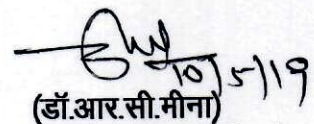 10/5/19
(डॉ.आर.सी.मीना)